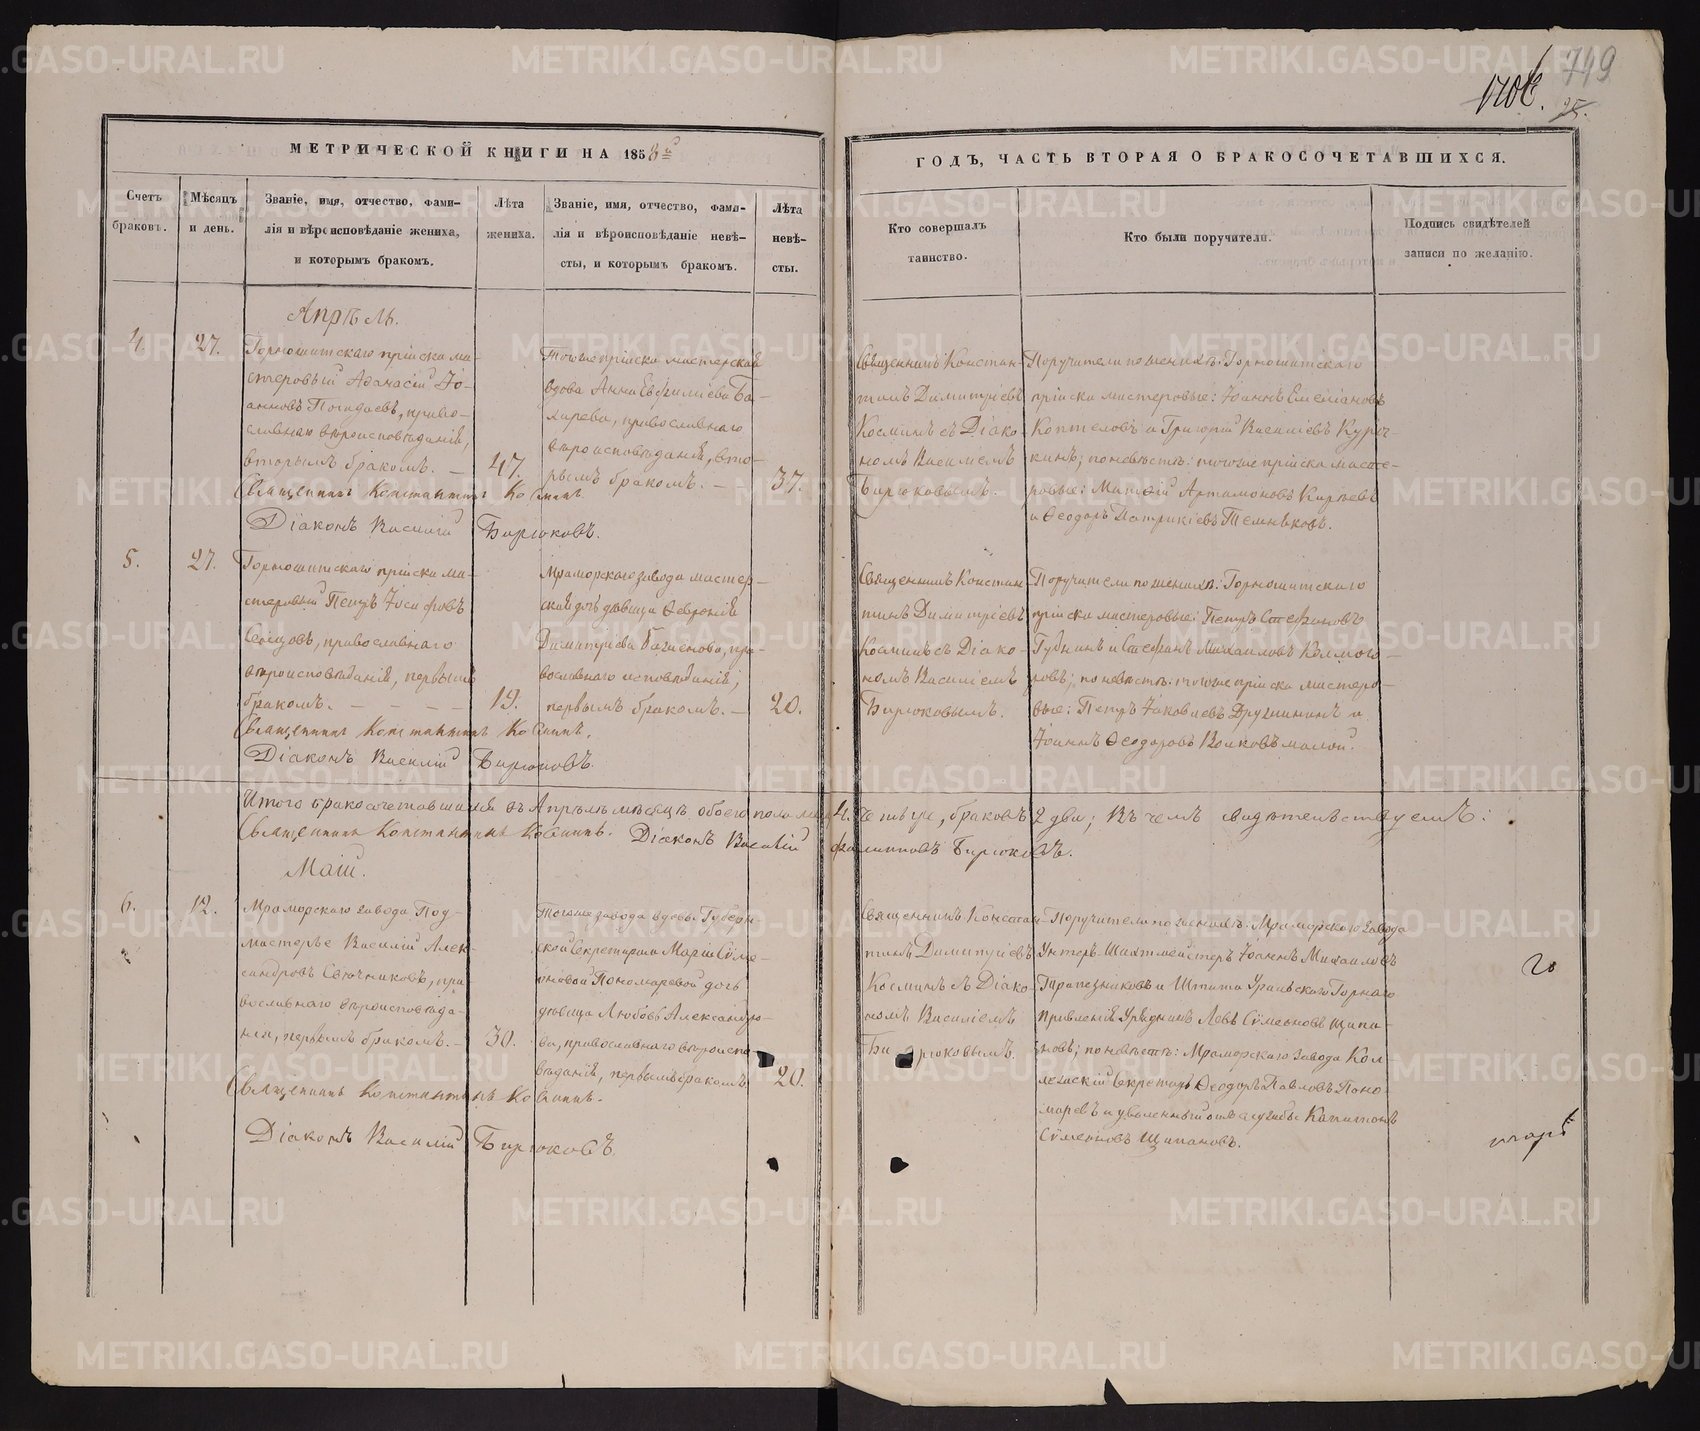 749
1706.
25.
МЕТРИЧЕСКОЙ КНИГИ НА 1858й
Счетъ браковъ.
Мѣсяцъ и день.
Званіе, имя, отчество, фами-
лія и вѣроисповѣданіе жениха,
и которымъ бракомъ.
Лѣта жениха.
Званіе, имя, отчество, фами-
лія и вѣроисповѣданіе невѣ-
сты, и которымъ бракомъ.
Лѣта невѣ-
сты.
ГОДЪ, ЧАСТЬ ВТОРАЯ О БРАКОСОЧЕТАВШИХСЯ.
Кто совершалъ
таинство.
Кто были поручители.
Подпись свидѣтелей
записи по желанію.
Апрѣль.
4
27.
Горнощитскаго пріиска ма-
стеровый Аѳанасій Іо-
анновъ Погадаевъ, право-
славнаго вѣроисповѣданія,
вторымъ бракомъ. –
47.
Тогоже пріиска мастерская
вдова Анна
православнаго
вѣроисповѣданія, вто-
рымъ бракомъ. –
37.
Священникъ Констан-
тинъ Димитріевъ
Косминъ съ Діако-
номъ Василіемъ
Бирюковымъ.
Поручители по женихѣ: Горнощитскаго
пріиска мастеровые: Іоаннъ Емеліановъ
Коптеловъ и Григорій Василіевъ Куроч-
кинъ; по невѣстѣ: тогоже пріиска масте-
ровые: Матѳій Артамоновъ Киряевъ
и Ѳеодоръ Патрикіевъ Темняковъ.
Священникъ Константинъ Косминъ.
Діаконъ Василій Бирюковъ.
5.
27.
Горнощитскаго пріиска ма-
стеровый Петръ Іосифовъ
православнаго
вѣроисповѣданія, первымъ
бракомъ. – – – –
19.
Мраморскаго завода мастер-
ская дочь дѣвица Ѳевронія
Димитріева пра-
вославнаго исповѣданія,
первымъ бракомъ. –
20.
Священникъ Констан-
тинъ Димитріевъ
Косминъ съ Діако-
номъ Василіемъ
Бирюковымъ.
Поручители по женихѣ: Горнощитскаго
пріиска мастеровые: Петръ Стефановъ
Губкинъ и Стефанъ Михаиловъ Колмого-
ровъ; по невѣстѣ: тогоже пріиска мастеро-
вые: Петръ Іаковлевъ Дружининъ и
Іоаннъ Ѳеодоровъ Волковъ малой.
Священникъ Константинъ Косминъ.
Діаконъ Василій Бирюковъ.
Итого бракосочетавшихся въ Апрѣлѣ мѣсяцѣ обоего пола 4. четыре, браковъ 2 два; Въ чемъ свидѣтельствуемъ:
Священникъ Константинъ Косминъ. Діаконъ Василій Филипповъ Бирюковъ.
Маій.
6.
12.
Мраморскаго завода Под-
мастерье Василій Алек-
сандровъ Свѣчниковъ, пра-
вославнаго вѣроисповѣда-
нія, первымъ бракомъ. –
30.
Тогоже завода вдовы Губерн-
ской Секретарши Маріи Сѵме-
оновой Пономаревой дочь
дѣвица Любовь Александро-
ва, православнаго вѣроиспо-
вѣданія, первымъ бракомъ
20.
Священникъ Констан-
тинъ Димитріевъ
Косминъ съ Діако-
номъ Василіемъ
Бирюковымъ.
Поручители по женихѣ: Мраморскаго завода
Унтеръ-Шихтмейстеръ Іоаннъ Михаиловъ
Трапезниковъ и Штата Уральскаго Горнаго
Правленія Урядникъ Левъ Сѵмеоновъ Щипа-
новъ; по невѣстѣ: Мраморскаго завода Кол-
лежскій Секретарь Ѳеодоръ Павловъ Поно-
маревъ и уволенный отъ службы Капитонъ
Сѵмеоновъ Щипановъ.
Священникъ Константинъ Косминъ.
Діаконъ Василій Бирюковъ.
METRIKI.GASO-URAL.RU